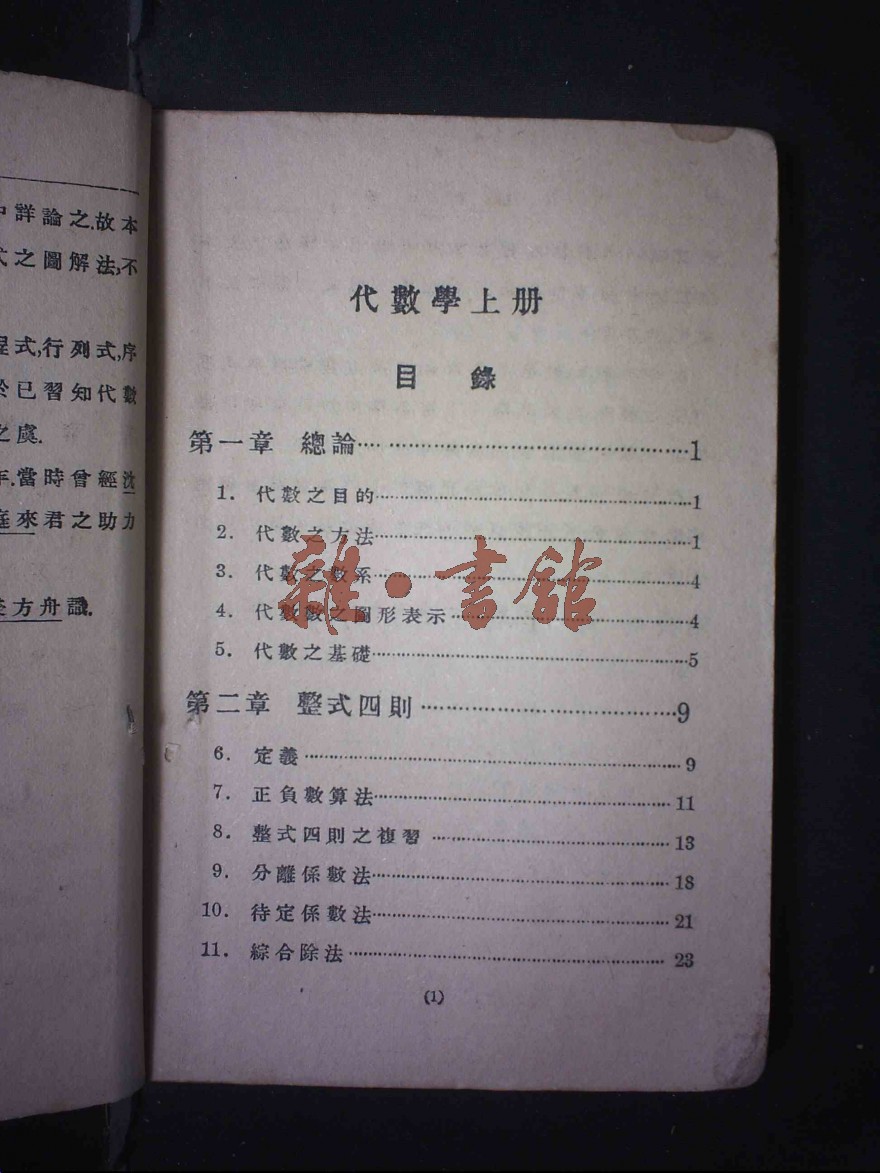 中詳論之.故本
式之圖解法,不
程式,行列式,序
於已習知代數
之虞.
年.當時曾經沈
庭來君之助力
方舟識.
代數學上册
目錄
第一章 總論 1
1. 代數之目的 1
2. 代數之方法 1
3. 代數之數系 4
4. 代數數之圖形表示 4
5. 代數之基礎 5
第二章 整式四則 9
6. 定義 9
7. 正負數算法 11
8. 整式四則之複習 13
9. 分離係數法 18
10. 待定係數法 21
11. 綜合除法 23
(1)
雜·書館